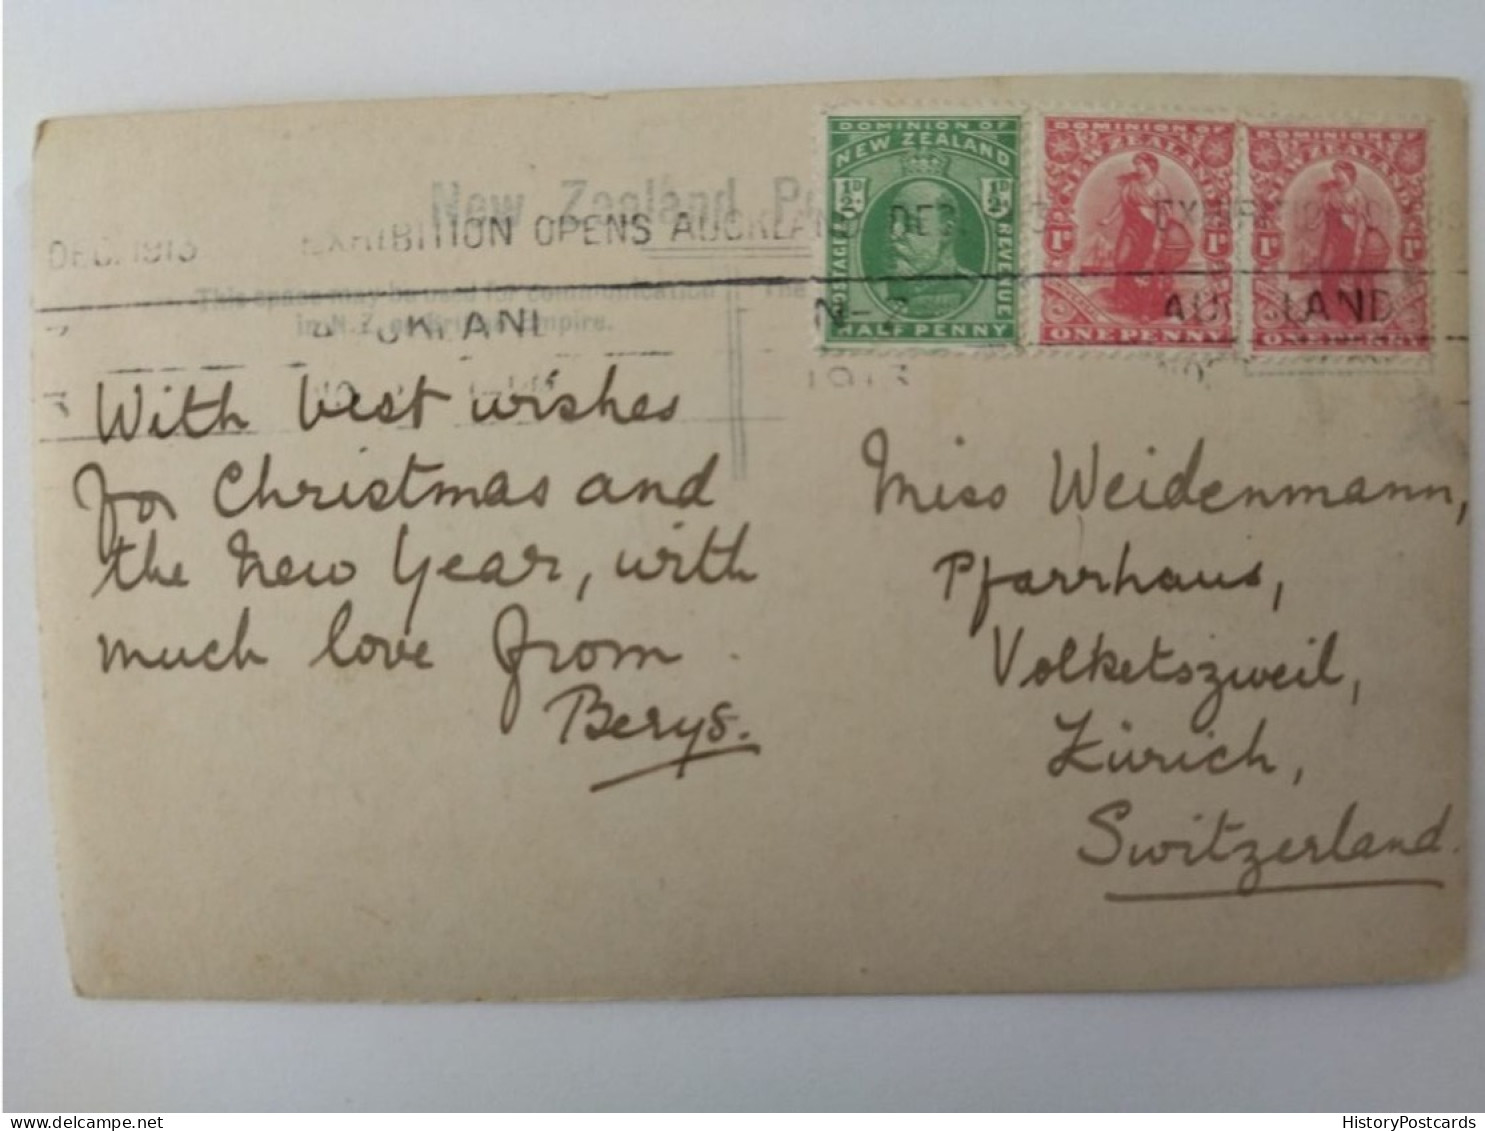 DOMINION OF
NEW ZEALAND
½D ½D
POSTAGE REVENUE
HALF PENNY
DOMINION OF
NEW ZEALAND
1D 1D
ONE PENNY
DOMINION OF
NEW ZEALAND
1D 1D
ONE PENNY
New Zealand
DEC. 1913 EXHIBITION OPENS AUCKLAND DEC.
This space may be used for communication
in N.Z. or British Empire.
The
AUCKLAND
1913
With best wishes
for Christmas and
the New Year, with
much love from
Berys.
Miss Weidenmann,
Pfarrhaus,
Volketszweil,
Zürich,
Switzerland.
HistoryPostcards
www.delcampe.net